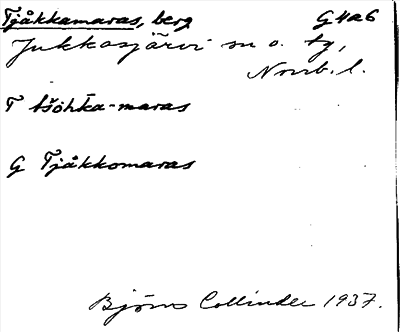 Tjåkkamaras, berg G4a6
Jukkasjärvi sn o. tg,
Norrb. l.
T tšåhka-maras
G Tjåkkomaras
Björn Collinder 1937.